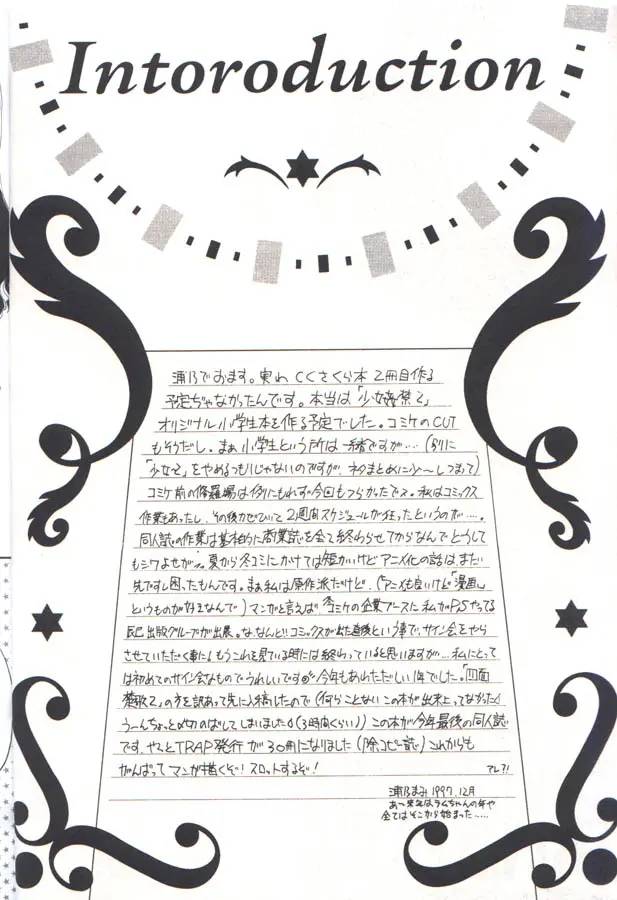 Intoroduction
浦乃でおます。実わCCさくら本2冊目作る
予定ぢゃなかったんです。本当は「少女禁2」
オリジナル小学生本を作る予定でした。コミケのCUT
もそうだし。まぁ小学生という所は一緒ですが…(別に
「少女2」をやめるつもりじゃないのですが、ネタまとめに少〜しつまって)
コミケ前の修羅場は例にもれず今回もつらかったでス。私はコミックス
作業もあったし、その後カゼひいて2週間スケジュールが狂ったというのが……。
同人誌の作業は基本的に商業誌を全て終わらせてからなんでどうして
もシワよせが。夏から冬コミにかけては短かいけどアニメ化の話は、まだ
先ですし困ったもんです。まぁ私は原作派だけど、(アニメも良いけど「漫画」
というものが好きなんで)マンガと言えばコミケの企業ブースに私がP.S.やってる
出版グループが出展。な、なんとコミックスが出た直後という事で、サイン会をやら
させていただく事に!もうこれを見ている時には終わっていると思いますが…私にとって
は初めてのサイン会なものでうれしいです。今年もあわただしい1年でした。「四面
楚歌2」の方を訳あって先に入稿したので(何らことないこの本が出来上ってなかった)
う〜んちょっと〆切のばしてしまいました(3時間くらい))この本が今年最後の同人誌
です。やっとTRAP発行が30冊になりました(除コピー誌)これからも
がんばってマンガ描くぞ!スロットするぞ! アレ?!
浦乃まみ 1997.12月
あっ来年はラムちゃんの年や
全てはそこから始まった……